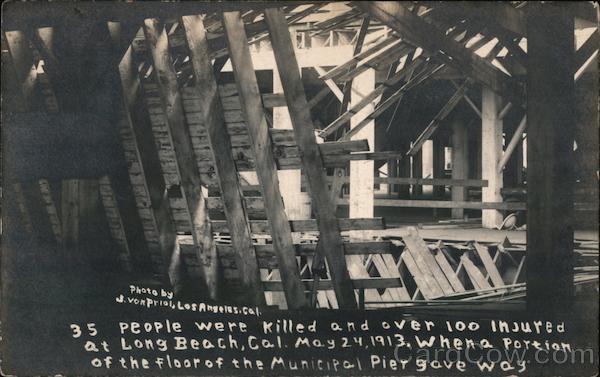 Photo by
J. Von Priol, Los Angeles. Cal.
35 People were killed and over 100 Injured
at Long Beach, Cal. May 24, 1913, When a Portion
of the floor of the Municipal Pier gave way
CardCow.com